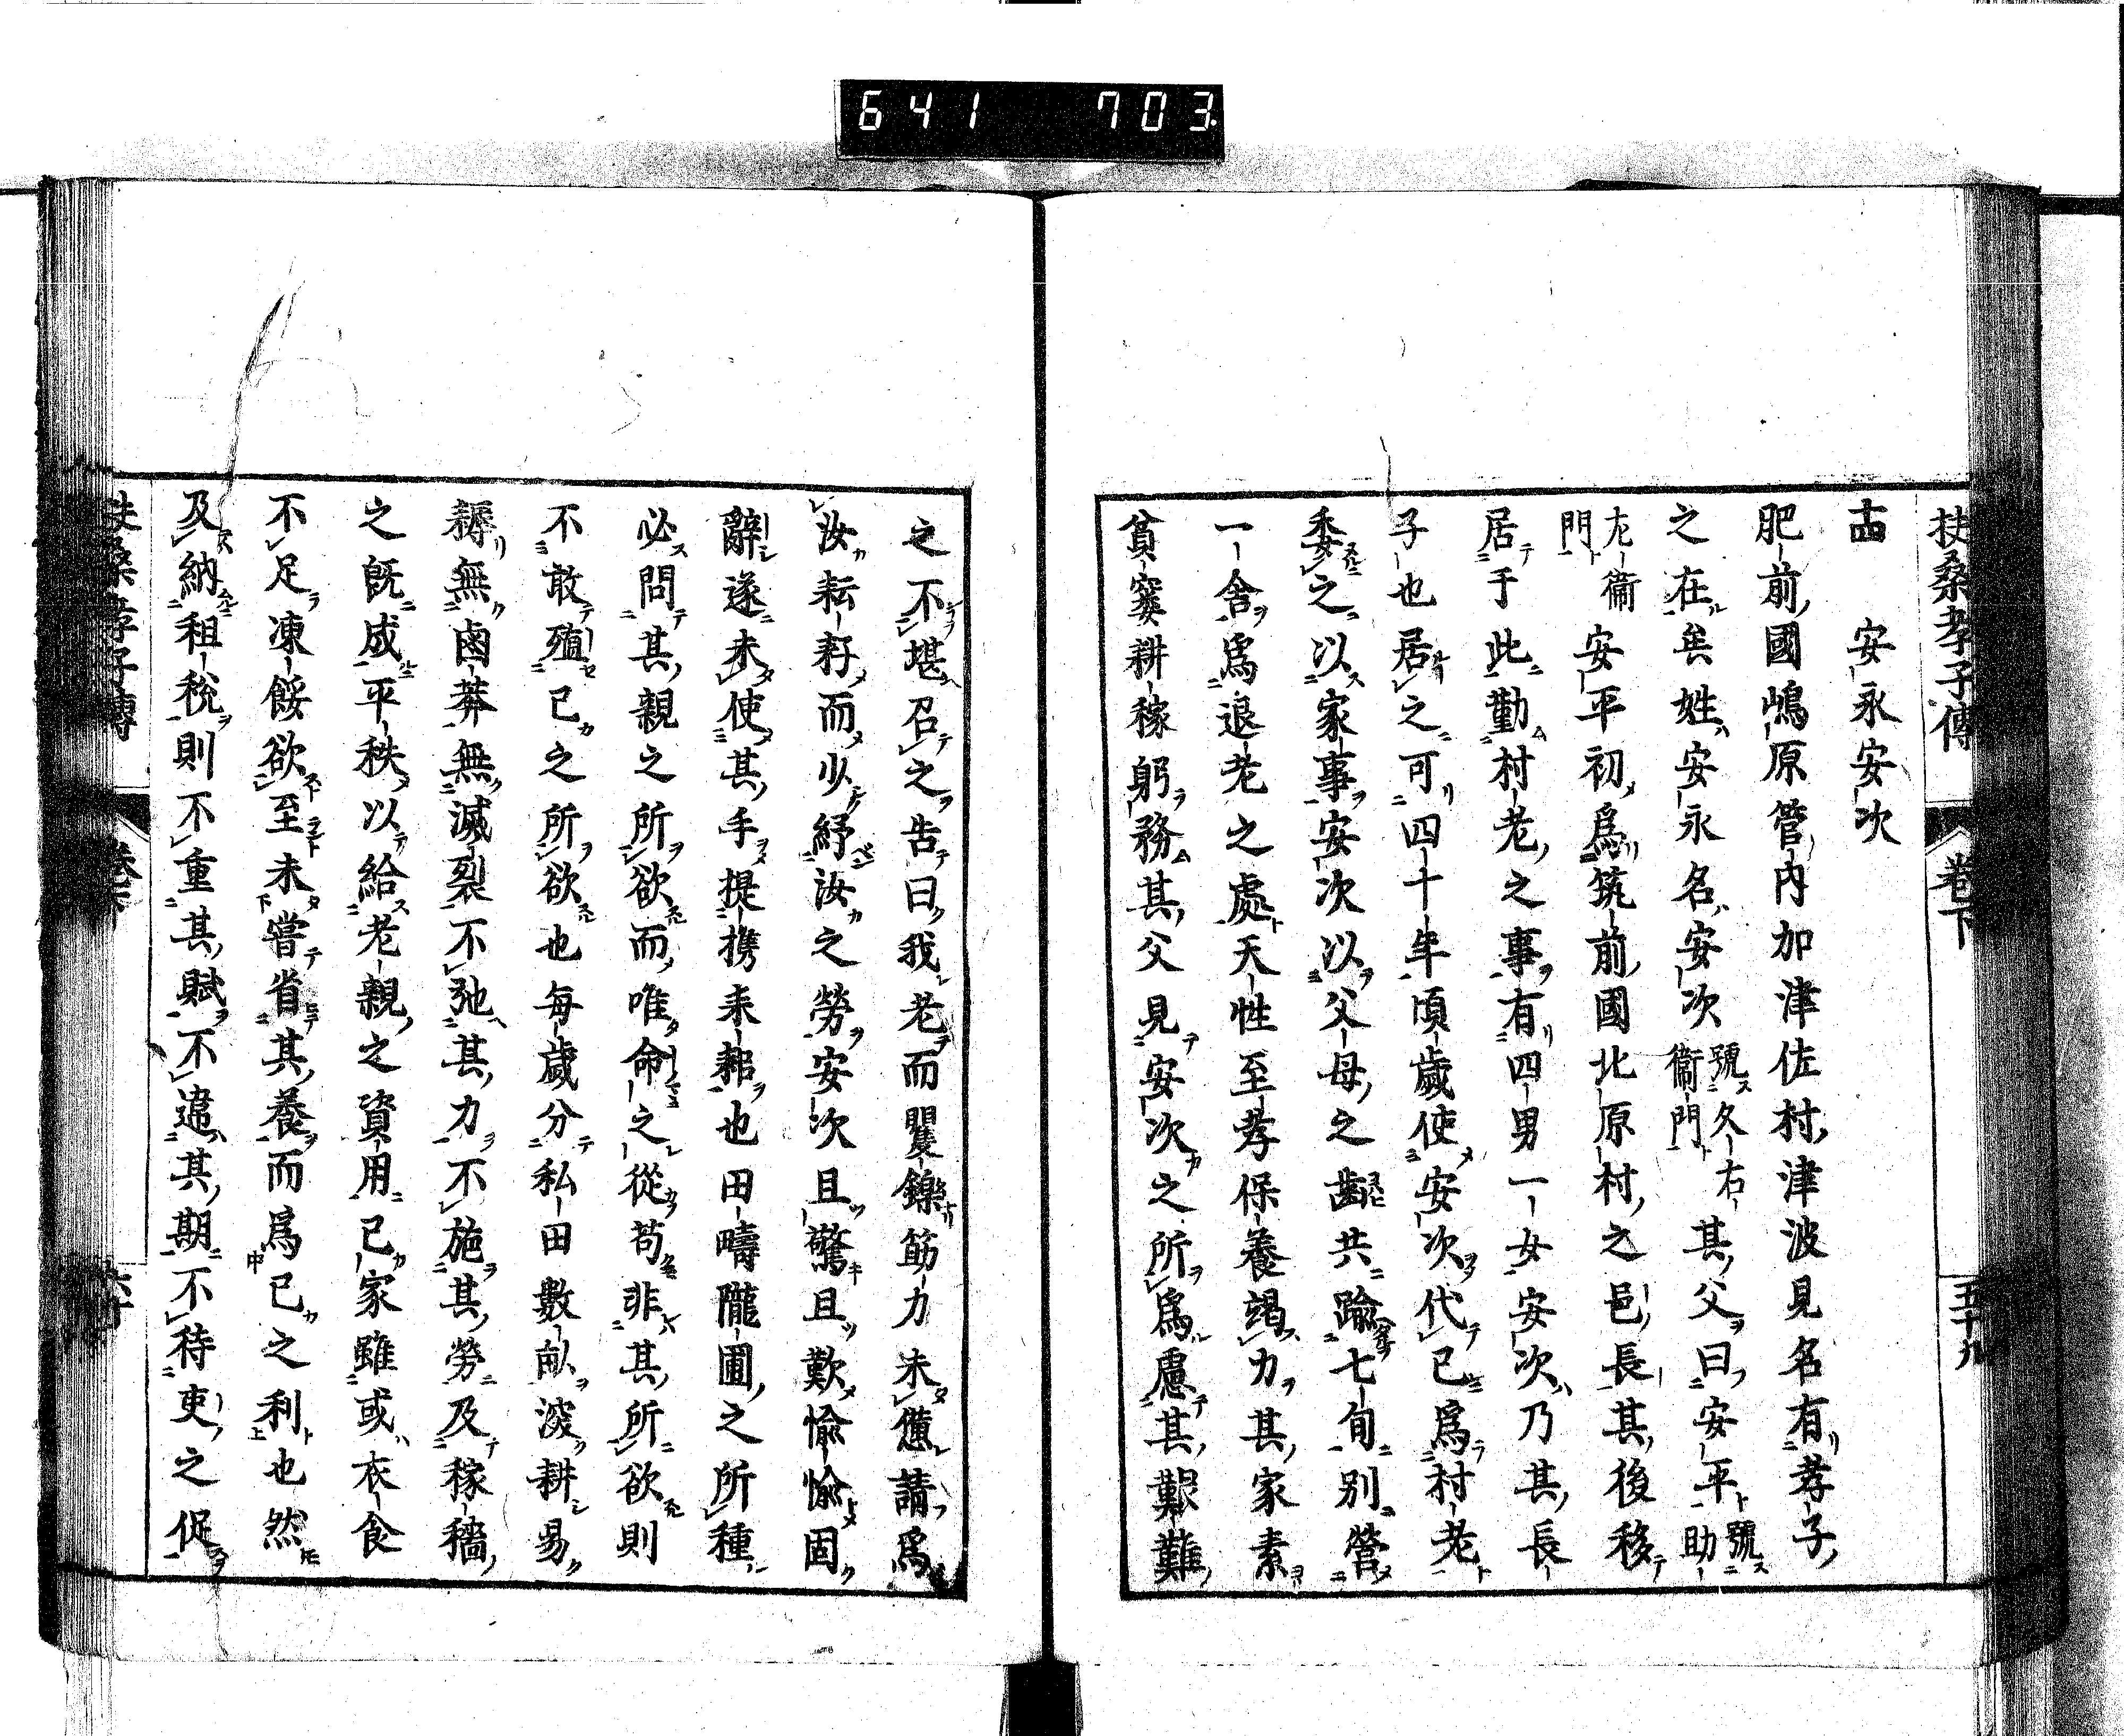 641 703
扶桑孝子傳 卷下 五十九
十四 安永安次
肥前國嶋原管內加津佐村津波見名有孝子
之在矣姓安永名安次號久右衞門其父曰安平號助
左衞門安平初爲筑前國北原村之邑長其後移
居于此勤村老之事有四男一女安次乃其長
子也居之可四十年頃歲使安次代已爲村老
委之以家事安次以父母之齒共踰七旬别營
一舍爲退老之處天性至孝保養竭力其家素
貧窶耕稼躬務其父見安次之所爲慮其艱難
之不堪召之告曰我老而矍鑠筋力未憊請爲
汝耘耔而少紓汝之勞安次且驚且歎愉愉固
辭遂未使其手提携耒耜也田疇隴圃之所種
必問其親之所欲而唯命之從苟非其所欲則
不敢殖已之所欲也每歲分私田數畝深耕易
耨無鹵莽無滅裂不弛其力不施其勞及稼穡
之既成平秩以給老親之資用已家雖或衣食
不足凍餒欲至未嘗省其養而爲已之利也然
及納租稅則不重其賦不違其期不待吏之促
扶桑孝子傳 卷下 六十